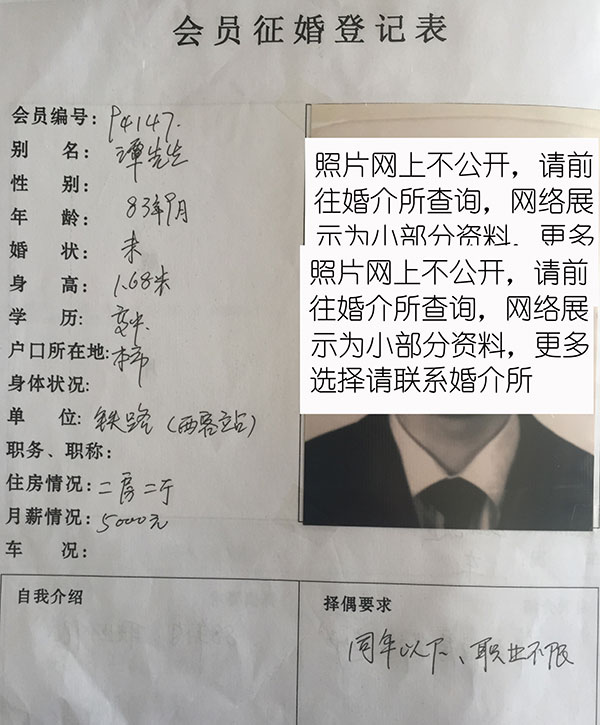 会员征婚登记表
会员编号：P4147.
别 名：谭先生
性 别：
年 龄：83年9月
婚 状：未
身 高：1.68米
学 历：高中
户口所在地：本市
身体状况：
单 位：铁路（西客站）
职务、职称：
住房情况：二房二厅
月薪情况：5000元
车 况：
照片网上不公开，请前
往婚介所查询，网络展
示为小部分资料，更多
照片网上不公开，请前
往婚介所查询，网络展
示为小部分资料，更多
选择请联系婚介所
自我介绍
择偶要求
同年以下、职业不限